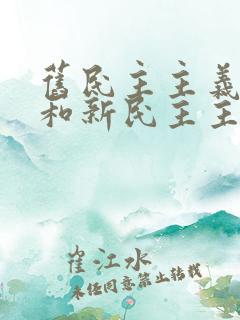 舊民主主義
和新民主主
崔江水
未经同意禁止转载